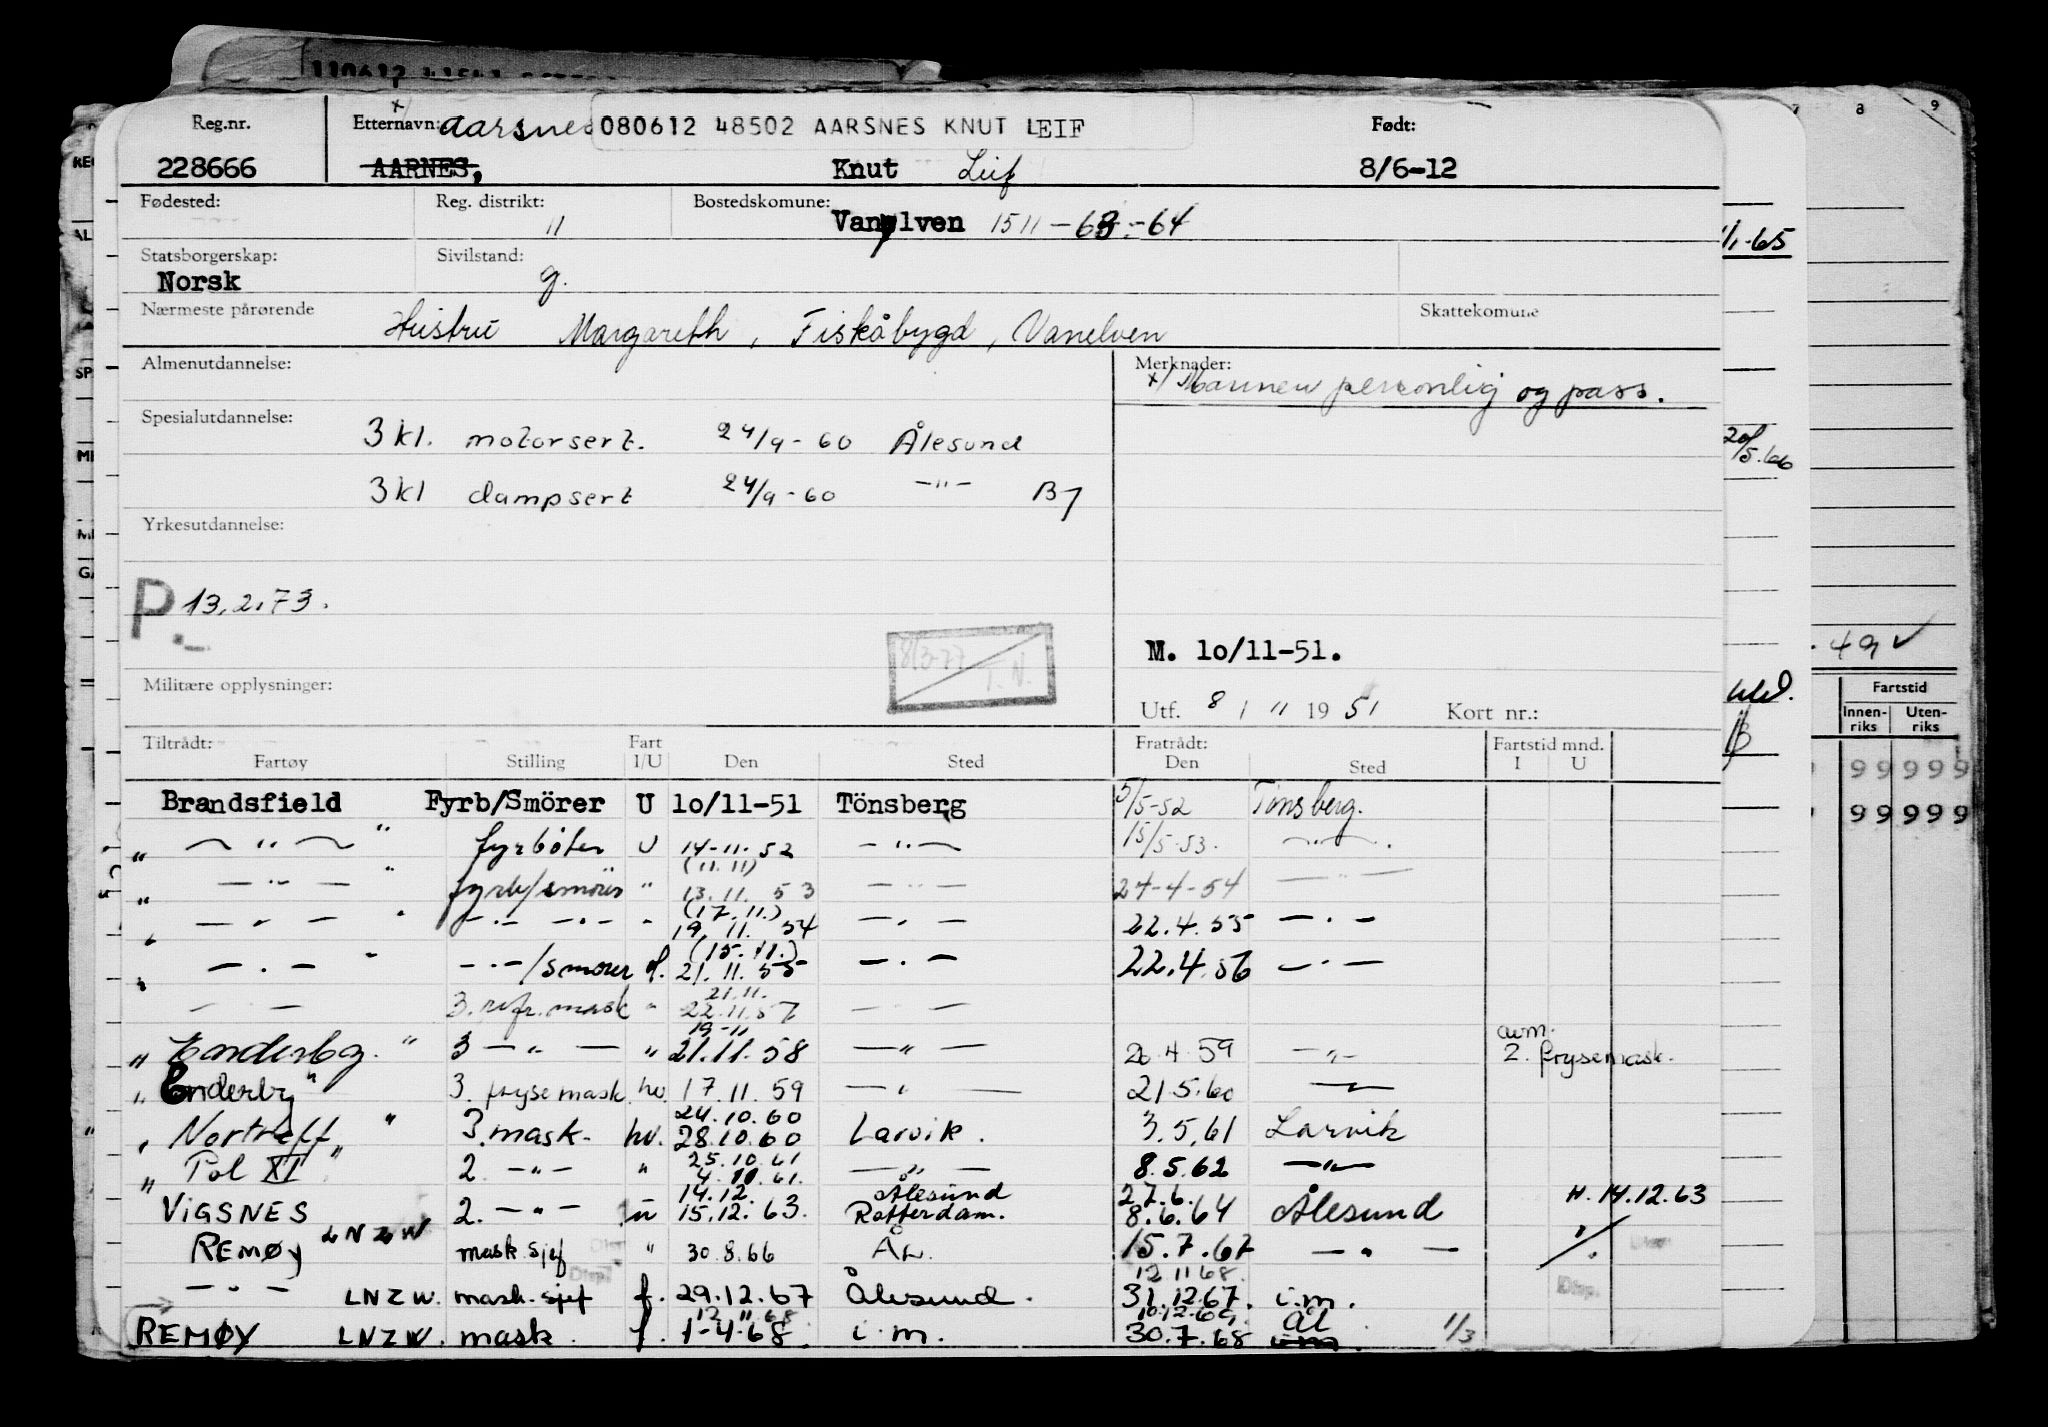 110612
Reg.nr. Etternavn: x/ Aarsnes 080612 48502 AARSNES KNUT LEIF Født:
228666 AARNES, Knut Leif 8/6-12
Fødested: Reg. distrikt: 11 Bostedskomune: Vanylven 1511 - 68 - 64
Statsborgerskap: Norsk Sivilstand: g.
Nærmeste pårørende Hustru Margareth, Fiskåbygd, Vanelven Skattekomune
Almenutdannelse: Merknader:
x/ Mannen personlig og pass.
Spesialutdannelse:
3 kl. motorsert. 24/9-60 Ålesund
3 kl dampsert 24/9-60 -"- By
Yrkesutdannelse:
P 13.2.73.
8/3-77 T. N.
M. 10/11-51.
Militære opplysninger:
Utf. 8 / 11 1951 Kort nr.:
Tiltrådt: Fart Fratrådt: Fartstid mnd.
Fartøy Stilling I/U Den Sted Den Sted I U
Brandsfield Fyrb/Smörer U 10/11-51 Tönsberg 5/5-52 Tønsberg.
" - " - " fyrbøter U 14-11. 52 - " - 15/5-53. - " -
(11.11)
" - " - " fyrb/smörer " 13.11. 53 - " - 24-4-54 - " -
(17.11.)
" - " - " - " - - " - " 19. 11. 54 - " - 22.4.55 - " -
(15.11.)
" - " - " - " - /smører f. 21.11.55 - " - 22.4.56 - " -
21.11.
- - 3. refr.mask " 22.11.57 - -
19-11 avm.
" Enderby. " 3 - " - " 21.11.58 - " - 26.4.59 - " - 2. frysemask.
" Enderby " 3. frysemask. hv. 17.11.59 - " - 21.5.60 - " -
24.10.60
" Nortreff " 3.mask. hv. 28.10.60 Larvik. 3.5.61 Larvik
25.10.61
" Pol XI " 2. - " - " 4.11.61. - " - 8.5.62 - " -
14.12. Ålesund 27.6. H. 14.12.63
VIGSNES 2. - " - u 15.12.63. Rotterdam. 8.6.64 Ålesund
REMØY LNZW mask.sjef " 30.8.66 ÅL. 15.7.67 - " -
12 11 68.
- " - LNZW. mask.sjef f. 29.12.67 Ålesund. 31.12.67. i.m.
12 11 68 10.12.69. Ål
REMØY LNZW. mask. f. 1-4-68. i.m. 30.7.68 i.m. 1/3
7 8 9
1/1-65
20/5.66
49 ✓
Fartstid
Innenriks Utenriks
9 9 9 9 9
9 9 9 9 9